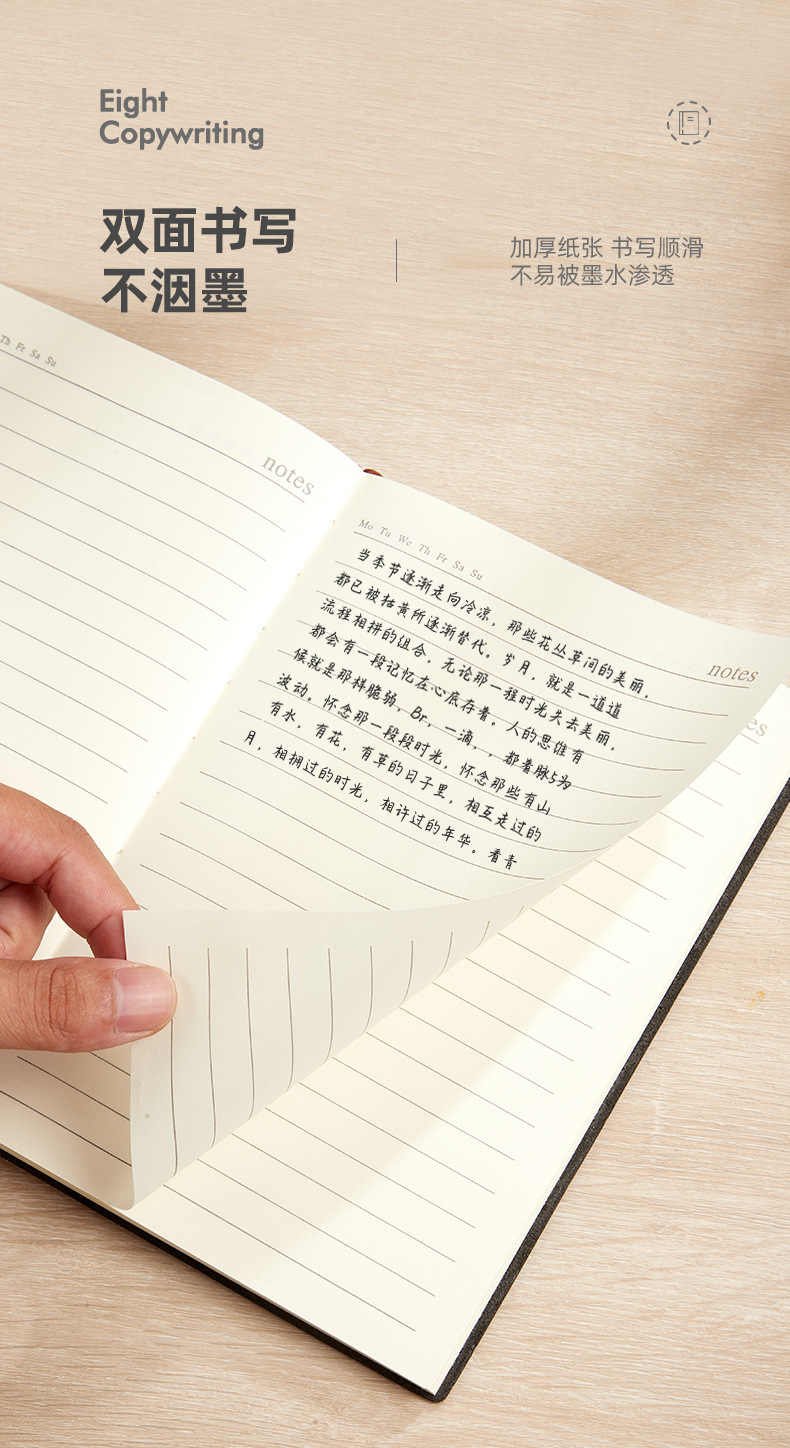 Eight
Copywriting
双面书写
不洇墨
加厚纸张 书写顺滑
不易被墨水渗透
Th Fr Sa Su
notes
Mo Tu We Th Fr Sa Su
当季节逐渐走向冷凉，那些花丛草间的美丽，
都已被枯黄所逐渐替代。岁月，就是一道道
流程相拼的组合，无论那一程时光失去美丽，
都会有一段记忆在心底存着。人的思谁有
候就是那样脆弱，Br，一滴，，都着脉5为
波动。怀念那一段段时光，怀念那些有山
有水，有花，有草的日子里，相互走过的
月，相拥过的时光，相许过的年华。看青
notes
es